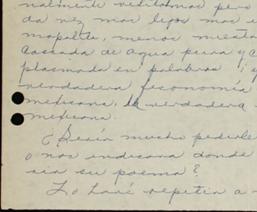 nalmente visitamos pero
da vez mas lejos mas e
mapaltec, menos mesta
cascada de agua pura y c
plasmada en palabras ¡ q
verdadera fisonomía
mexicana, la verdadera
mexicana.
¿Sería mucho pedirle
o nos indicara donde
sia su poema?
Lo haré repetir a